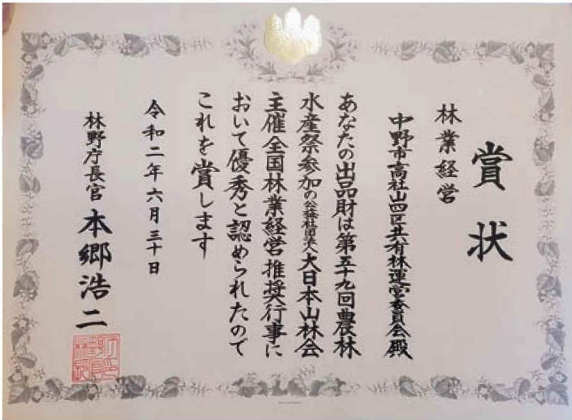 賞状
林業経営
中野市高社山四区共有林運営委員会殿
あなたの出品財は第五十九回農林
水産祭参加の公益社団法人大日本山林会
主催全国林業経営推奨行事に
おいて優秀と認められたので
これを賞します
令和二年六月三十日
林野庁長官 本郷浩二